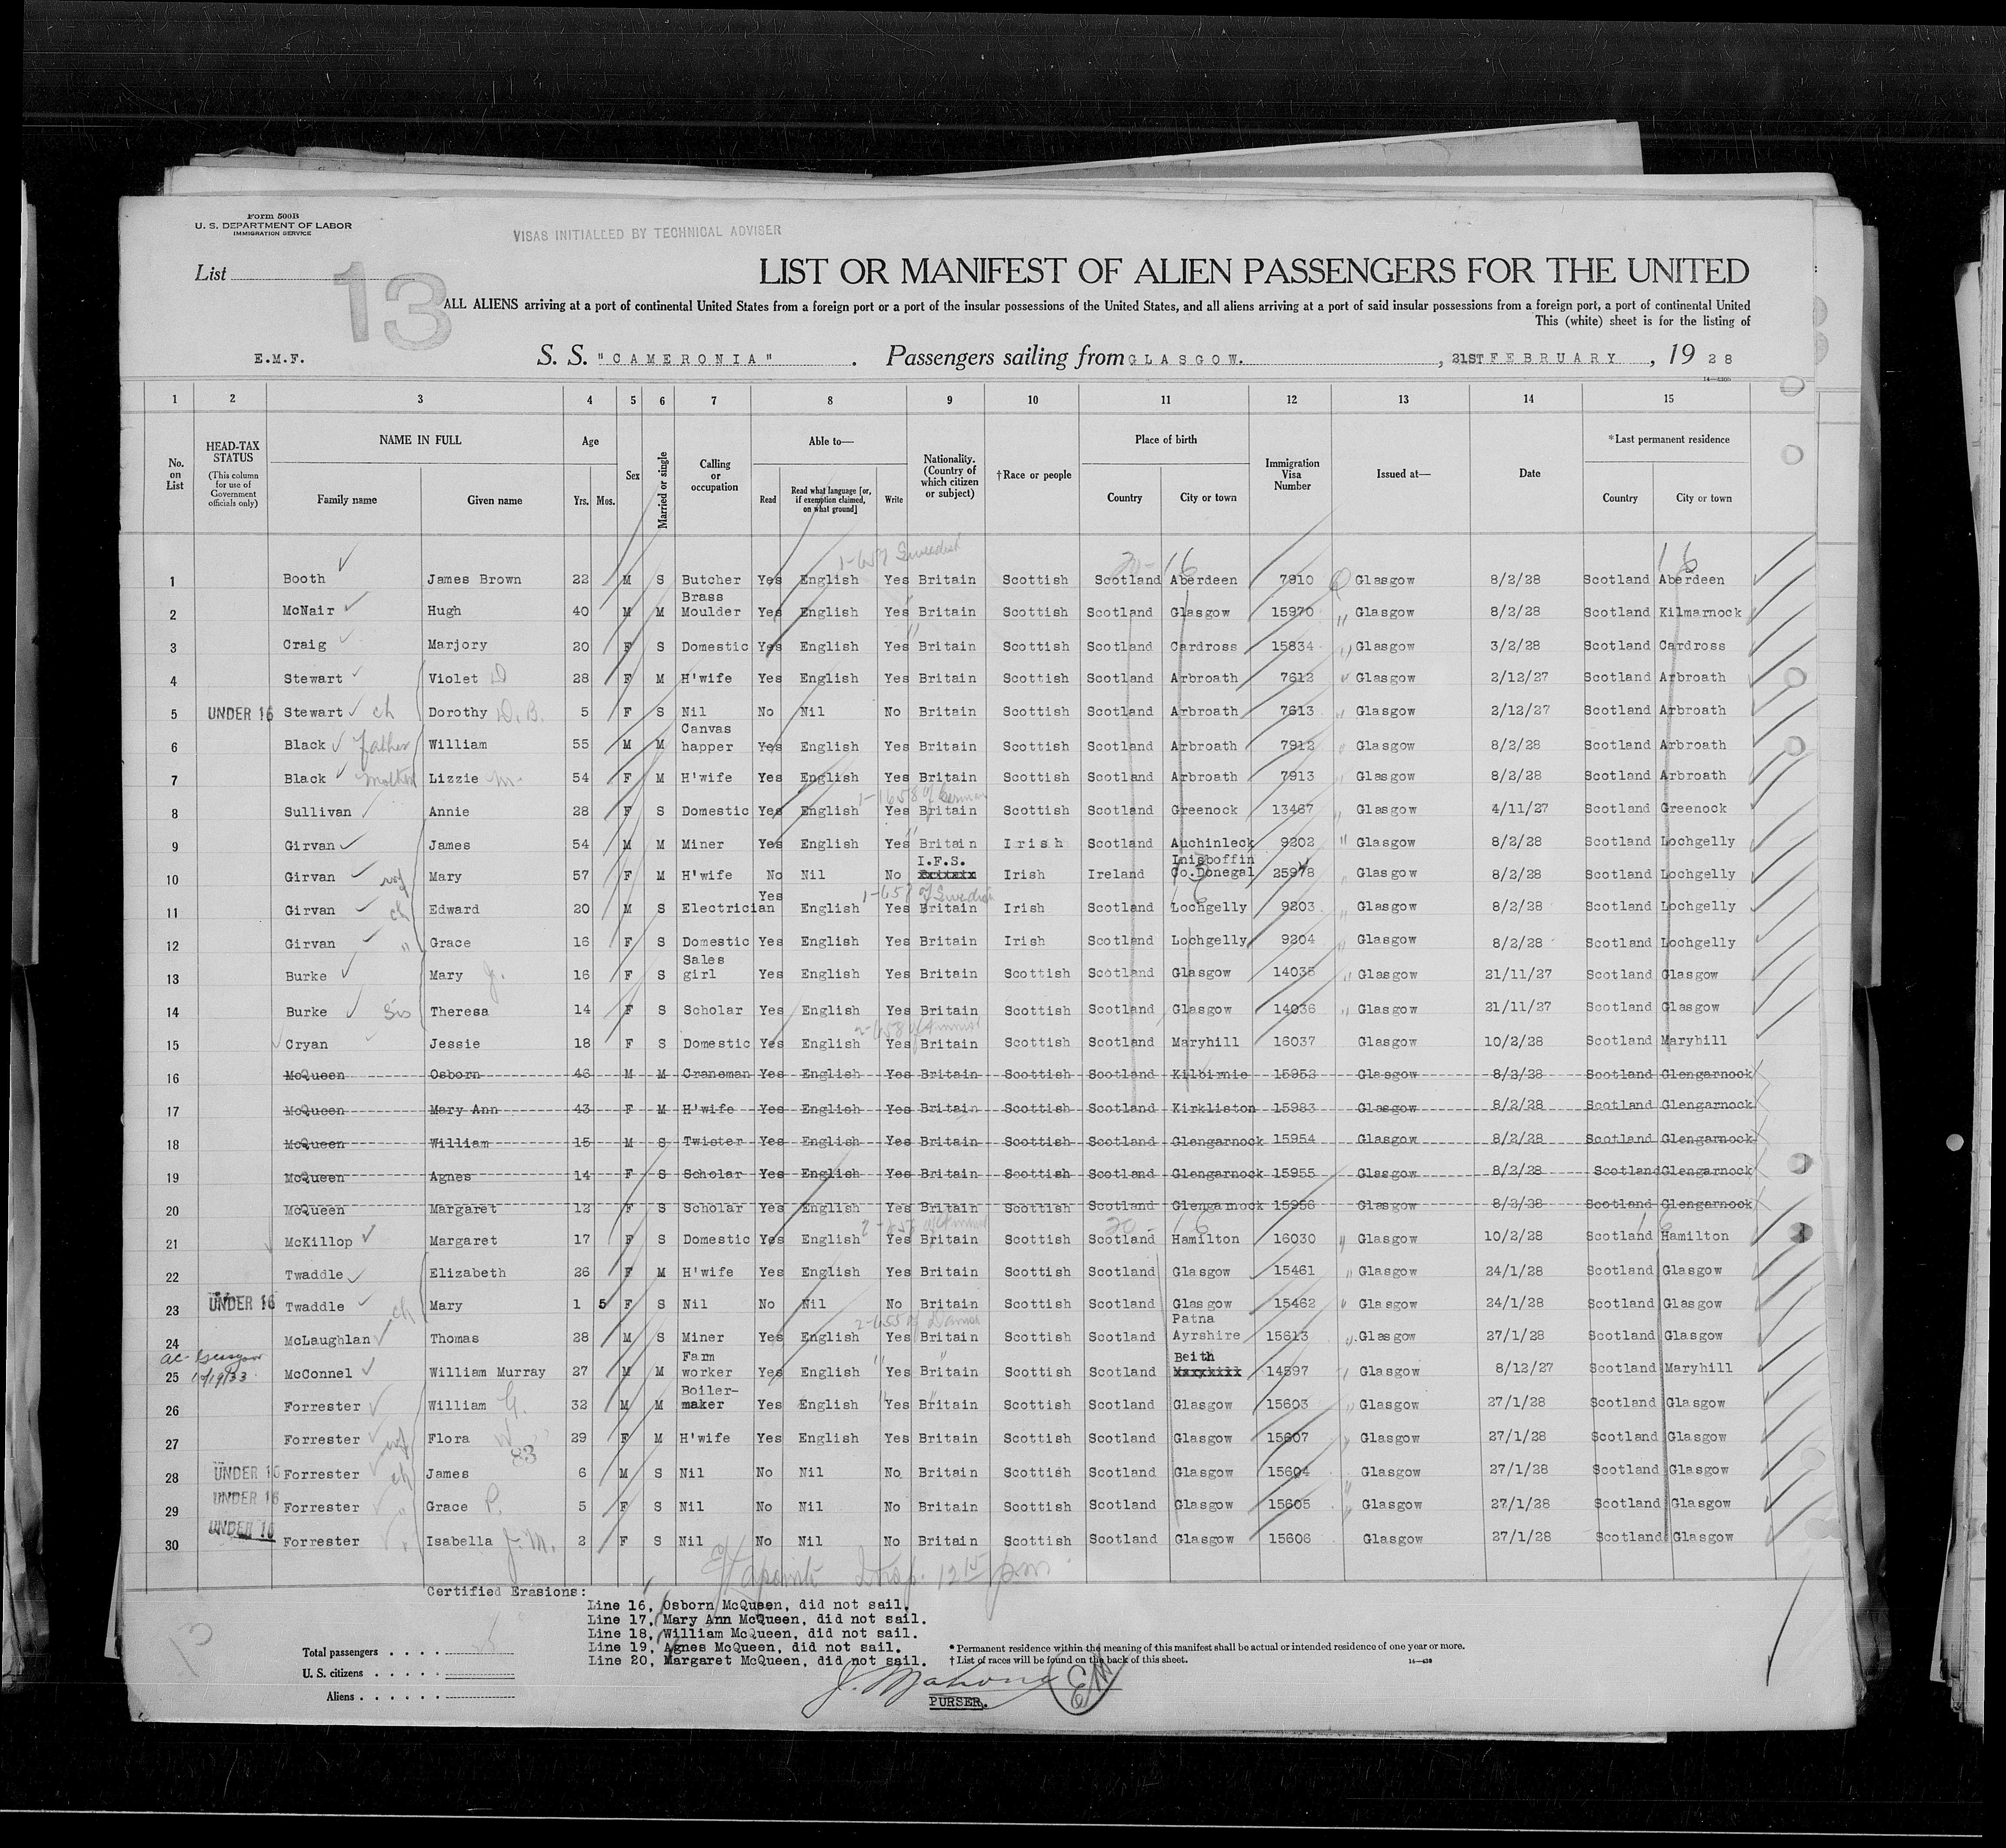 Form 500B
U. S. DEPARTMENT OF LABOR
IMMIGRATION SERVICE
VISAS INITIALLED BY TECHNICAL ADVISER
List 13
LIST OR MANIFEST OF ALIEN PASSENGERS FOR THE UNITED
ALL ALIENS arriving at a port of continental United States from a foreign port or a port of the insular possessions of the United States, and all aliens arriving at a port of said insular possessions from a foreign port, a port of continental United
This (white) sheet is for the listing of
E.M.F. S. S. "CAMERONIA". Passengers sailing from GLASGOW. , 21ST FEBRUARY , 19 28
1 2 3 4 5 6 7 8 9 10 11 12 13 14 15
No. on List
HEAD-TAX STATUS
(This column for use of Government officials only)
NAME IN FULL
Family name Given name
Age
Yrs. Mos.
Sex
Married or single
Calling or occupation
Able to—
Read Read what language [or, if exemption claimed, on what ground] Write
Nationality. (Country of which citizen or subject)
†Race or people
Place of birth
Country City or town
Immigration Visa Number
Issued at—
Date
*Last permanent residence
Country City or town
1 Booth James Brown 22 M S Butcher Yes English Yes Britain Scottish Scotland Aberdeen 7910 Glasgow 8/2/28 Scotland Aberdeen
2 McNair Hugh 40 M M Brass Moulder Yes English Yes Britain Scottish Scotland Glasgow 15970 Glasgow 8/2/28 Scotland Kilmarnock
3 Craig Marjory 20 F S Domestic Yes English Yes Britain Scottish Scotland Cardross 15834 Glasgow 3/2/28 Scotland Cardross
4 Stewart Violet D 28 F M H'wife Yes English Yes Britain Scottish Scotland Arbroath 7612 Glasgow 2/12/27 Scotland Arbroath
5 UNDER 16 Stewart ch Dorothy D.B. 5 F S Nil No Nil No Britain Scottish Scotland Arbroath 7613 Glasgow 2/12/27 Scotland Arbroath
6 Black father William 55 M M Canvas happer Yes English Yes Britain Scottish Scotland Arbroath 7912 Glasgow 8/2/28 Scotland Arbroath
7 Black mother Lizzie M. 54 F M H'wife Yes English Yes Britain Scottish Scotland Arbroath 7913 Glasgow 8/2/28 Scotland Arbroath
8 Sullivan Annie 28 F S Domestic Yes English Yes Britain Scottish Scotland Greenock 13467 Glasgow 4/11/27 Scotland Greenock
9 Girvan James 54 M M Miner Yes English Yes Britain Irish Scotland Auchinleck 9202 Glasgow 8/2/28 Scotland Lochgelly
10 Girvan wf Mary 57 F M H'wife No Nil No I.F.S. Britain Irish Ireland Inisboffin Co.Donegal 25978 Glasgow 8/2/28 Scotland Lochgelly
11 Girvan ch Edward 20 M S Electrician Yes English Yes Britain Irish Scotland Lochgelly 9203 Glasgow 8/2/28 Scotland Lochgelly
12 Girvan " Grace 16 F S Domestic Yes English Yes Britain Irish Scotland Lochgelly 9204 Glasgow 8/2/28 Scotland Lochgelly
13 Burke Mary J. 16 F S Sales girl Yes English Yes Britain Scottish Scotland Glasgow 14035 Glasgow 21/11/27 Scotland Glasgow
14 Burke Sis Theresa 14 F S Scholar Yes English Yes Britain Scottish Scotland Glasgow 14036 Glasgow 21/11/27 Scotland Glasgow
15 Cryan Jessie 18 F S Domestic Yes English Yes Britain Scottish Scotland Maryhill 16037 Glasgow 10/2/28 Scotland Maryhill
16 McQueen Osborn 46 M M Craneman Yes English Yes Britain Scottish Scotland Kilbirnie 15952 Glasgow 8/2/28 Scotland Glengarnock
17 McQueen Mary Ann 43 F M H'wife Yes English Yes Britain Scottish Scotland Kirkliston 15983 Glasgow 8/2/28 Scotland Glengarnock
18 McQueen William 15 M S Twister Yes English Yes Britain Scottish Scotland Glengarnock 15954 Glasgow 8/2/28 Scotland Glengarnock
19 McQueen Agnes 14 F S Scholar Yes English Yes Britain Scottish Scotland Glengarnock 15955 Glasgow 8/2/28 Scotland Glengarnock
20 McQueen Margaret 12 F S Scholar Yes English Yes Britain Scottish Scotland Glengarnock 15956 Glasgow 8/2/28 Scotland Glengarnock
21 McKillop Margaret 17 F S Domestic Yes English Yes Britain Scottish Scotland Hamilton 16030 Glasgow 10/2/28 Scotland Hamilton
22 Twaddle Elizabeth 26 F M H'wife Yes English Yes Britain Scottish Scotland Glasgow 15461 Glasgow 24/1/28 Scotland Glasgow
23 UNDER 16 Twaddle ch Mary 1 5 F S Nil No Nil No Britain Scottish Scotland Glasgow 15462 Glasgow 24/1/28 Scotland Glasgow
24 McLaughlan Thomas 28 M S Miner Yes English Yes Britain Scottish Scotland Patna Ayrshire 15613 Glasgow 27/1/28 Scotland Glasgow
25 10/19/33 McConnel William Murray 27 M M Farm worker Yes English Yes Britain Scottish Scotland Beith 14597 Glasgow 8/12/27 Scotland Maryhill
26 Forrester William G. 32 M M Boiler-maker Yes English Yes Britain Scottish Scotland Glasgow 15603 Glasgow 27/1/28 Scotland Glasgow
27 Forrester wf Flora 29 F M H'wife Yes English Yes Britain Scottish Scotland Glasgow 15607 Glasgow 27/1/28 Scotland Glasgow
28 UNDER 16 Forrester ch James 6 M S Nil No Nil No Britain Scottish Scotland Glasgow 15604 Glasgow 27/1/28 Scotland Glasgow
29 UNDER 16 Forrester " Grace P. 5 F S Nil No Nil No Britain Scottish Scotland Glasgow 15605 Glasgow 27/1/28 Scotland Glasgow
30 UNDER 16 Forrester " Isabella J.M. 2 F S Nil No Nil No Britain Scottish Scotland Glasgow 15606 Glasgow 27/1/28 Scotland Glasgow
Certified Erasions:
Line 16, Osborn McQueen, did not sail.
Line 17, Mary Ann McQueen, did not sail.
Line 18, William McQueen, did not sail.
Line 19, Agnes McQueen, did not sail.
Line 20, Margaret McQueen, did not sail.
Total passengers
U. S. citizens
Aliens
* Permanent residence within the meaning of this manifest shall be actual or intended residence of one year or more.
† List of races will be found on the back of this sheet.
PURSER.
EM